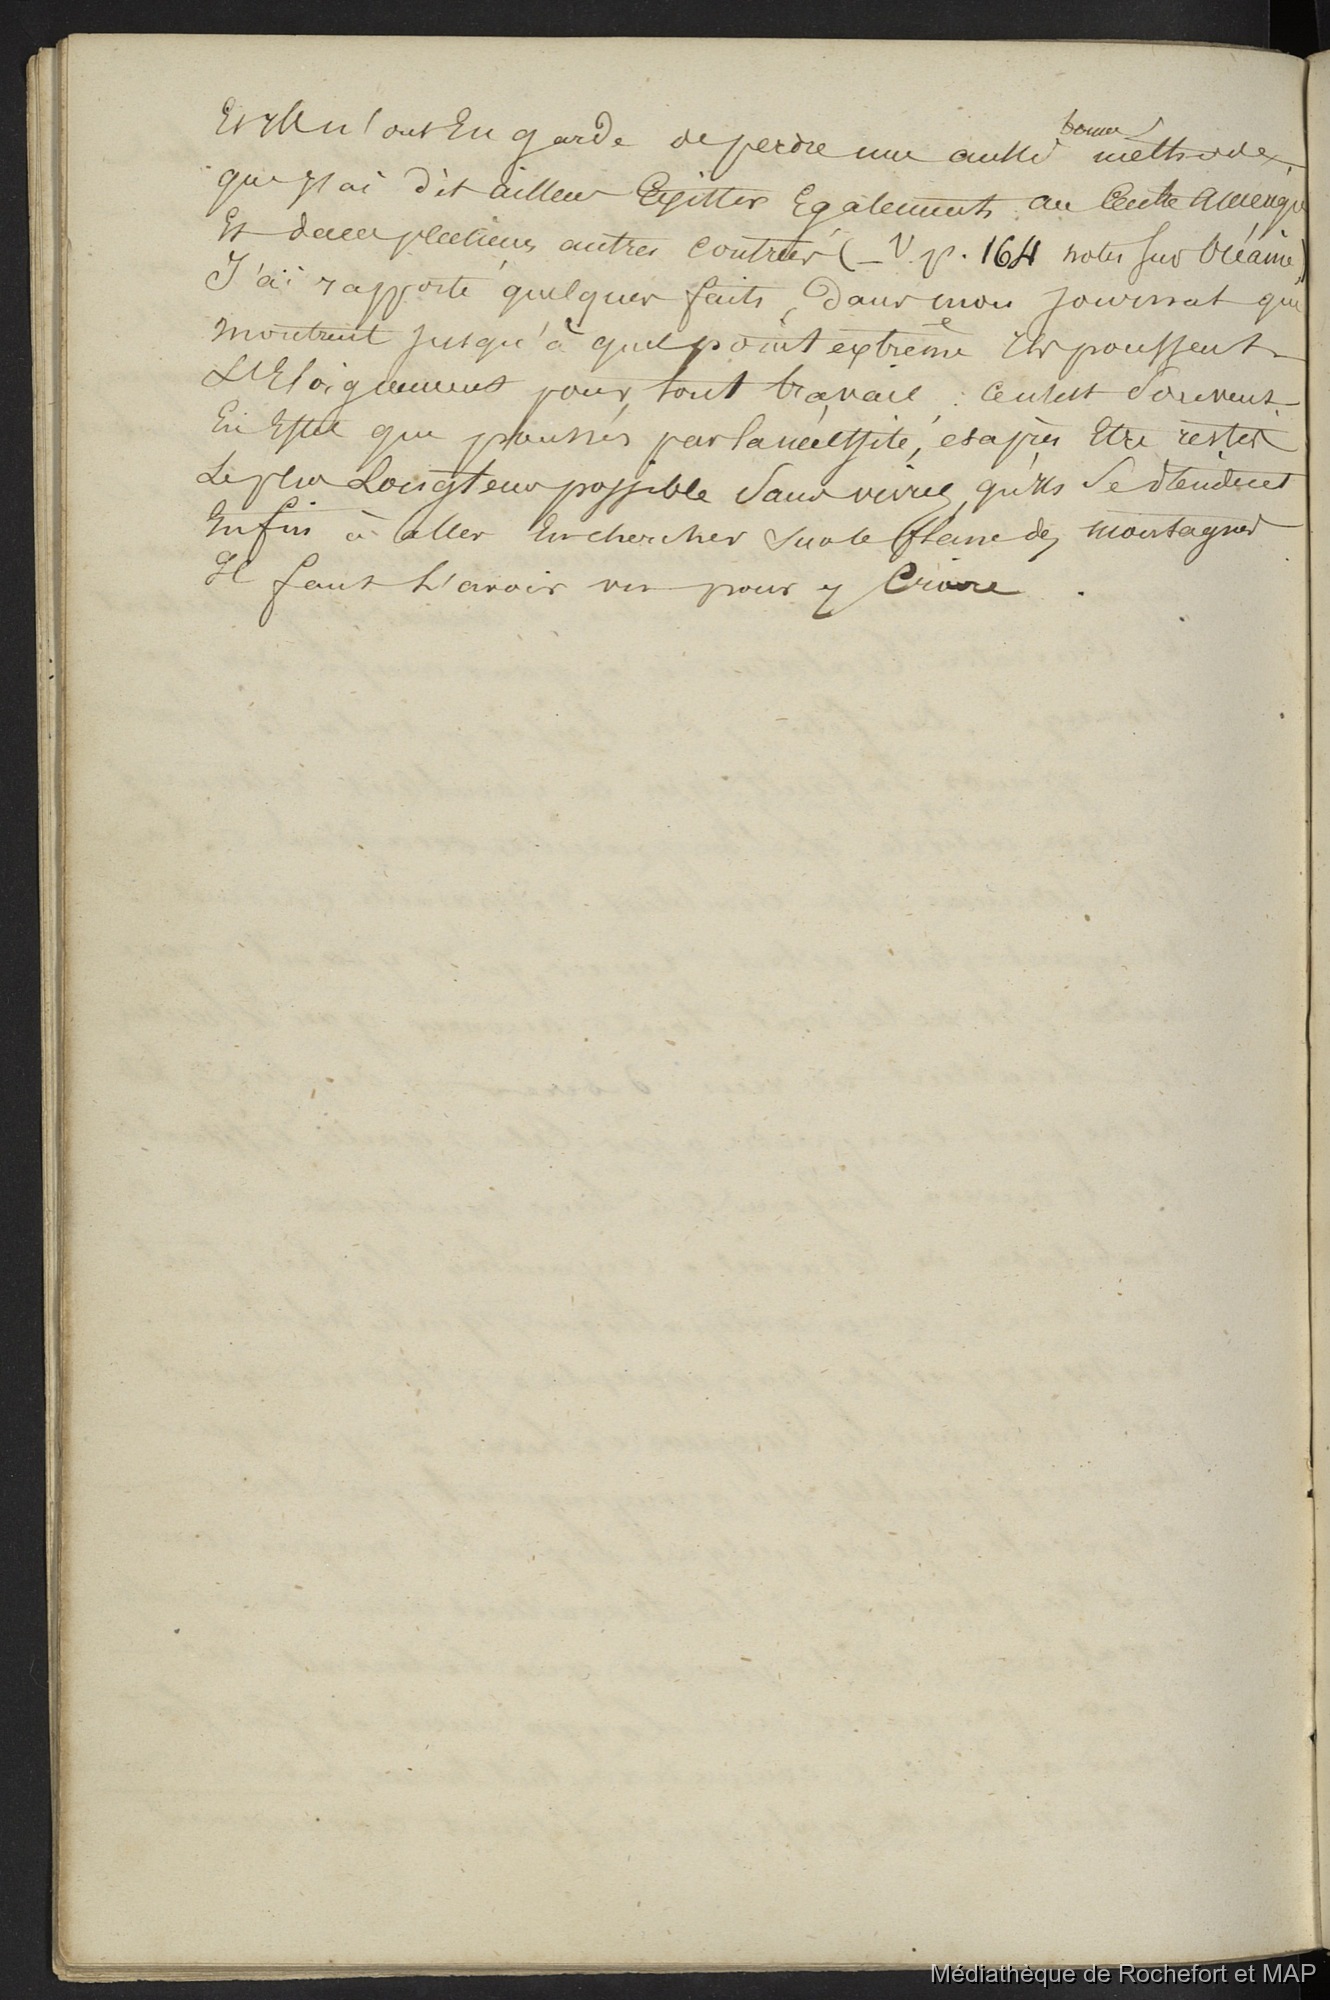 Et ils n'ont En garde de perdre une aussi bonne methode,
que j'ai dit ailleur Exister Egalement au Centre Amériq
Et dans plusieurs autres contrées (_ V. p. 164 notes sur Océanie)
J'ai rapporté quelques faits, dans mon journal qui
montrent jusqu'à quel point extrême ils poussent
L'Eloignement pour tout travail : ce n'est Souvent
En Effet que poussés par la nécessité, et après Etre restés
Le plus Longtems possible Sans vivres, qu'ils Se décident
Enfin à aller En chercher sur le flanc des montagnes
Il faut L'avoir vu pour y Croire .
Médiathèque de Rochefort et MAP